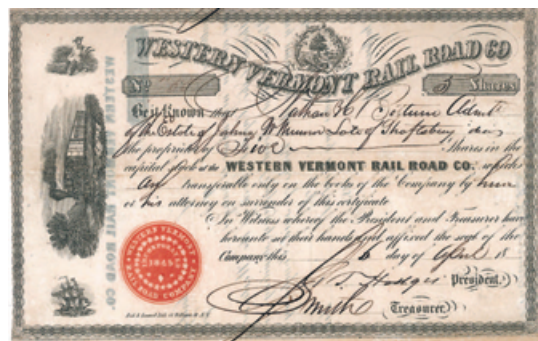 WESTERN VERMONT RAIL ROAD CO
No 5 Shares
Be it Known that Nathan H. Bottum Adm.
of the Estate of Munro late of Shaftsbury
the proprietor of Five Shares in the
capital stock of the WESTERN VERMONT RAIL ROAD CO. which
are transferable only on the books of the Company by him
or his attorney on surrender of this certificate
In Witness whereof the President and Treasurer have
hereunto set their hands and affixed the seal of the
Company this 6 day of April 18
Hodges President.
Smith Treasurer.
WESTERN VERMONT RAIL ROAD CO
WESTERN VERMONT
1845
RAIL ROAD COMPANY